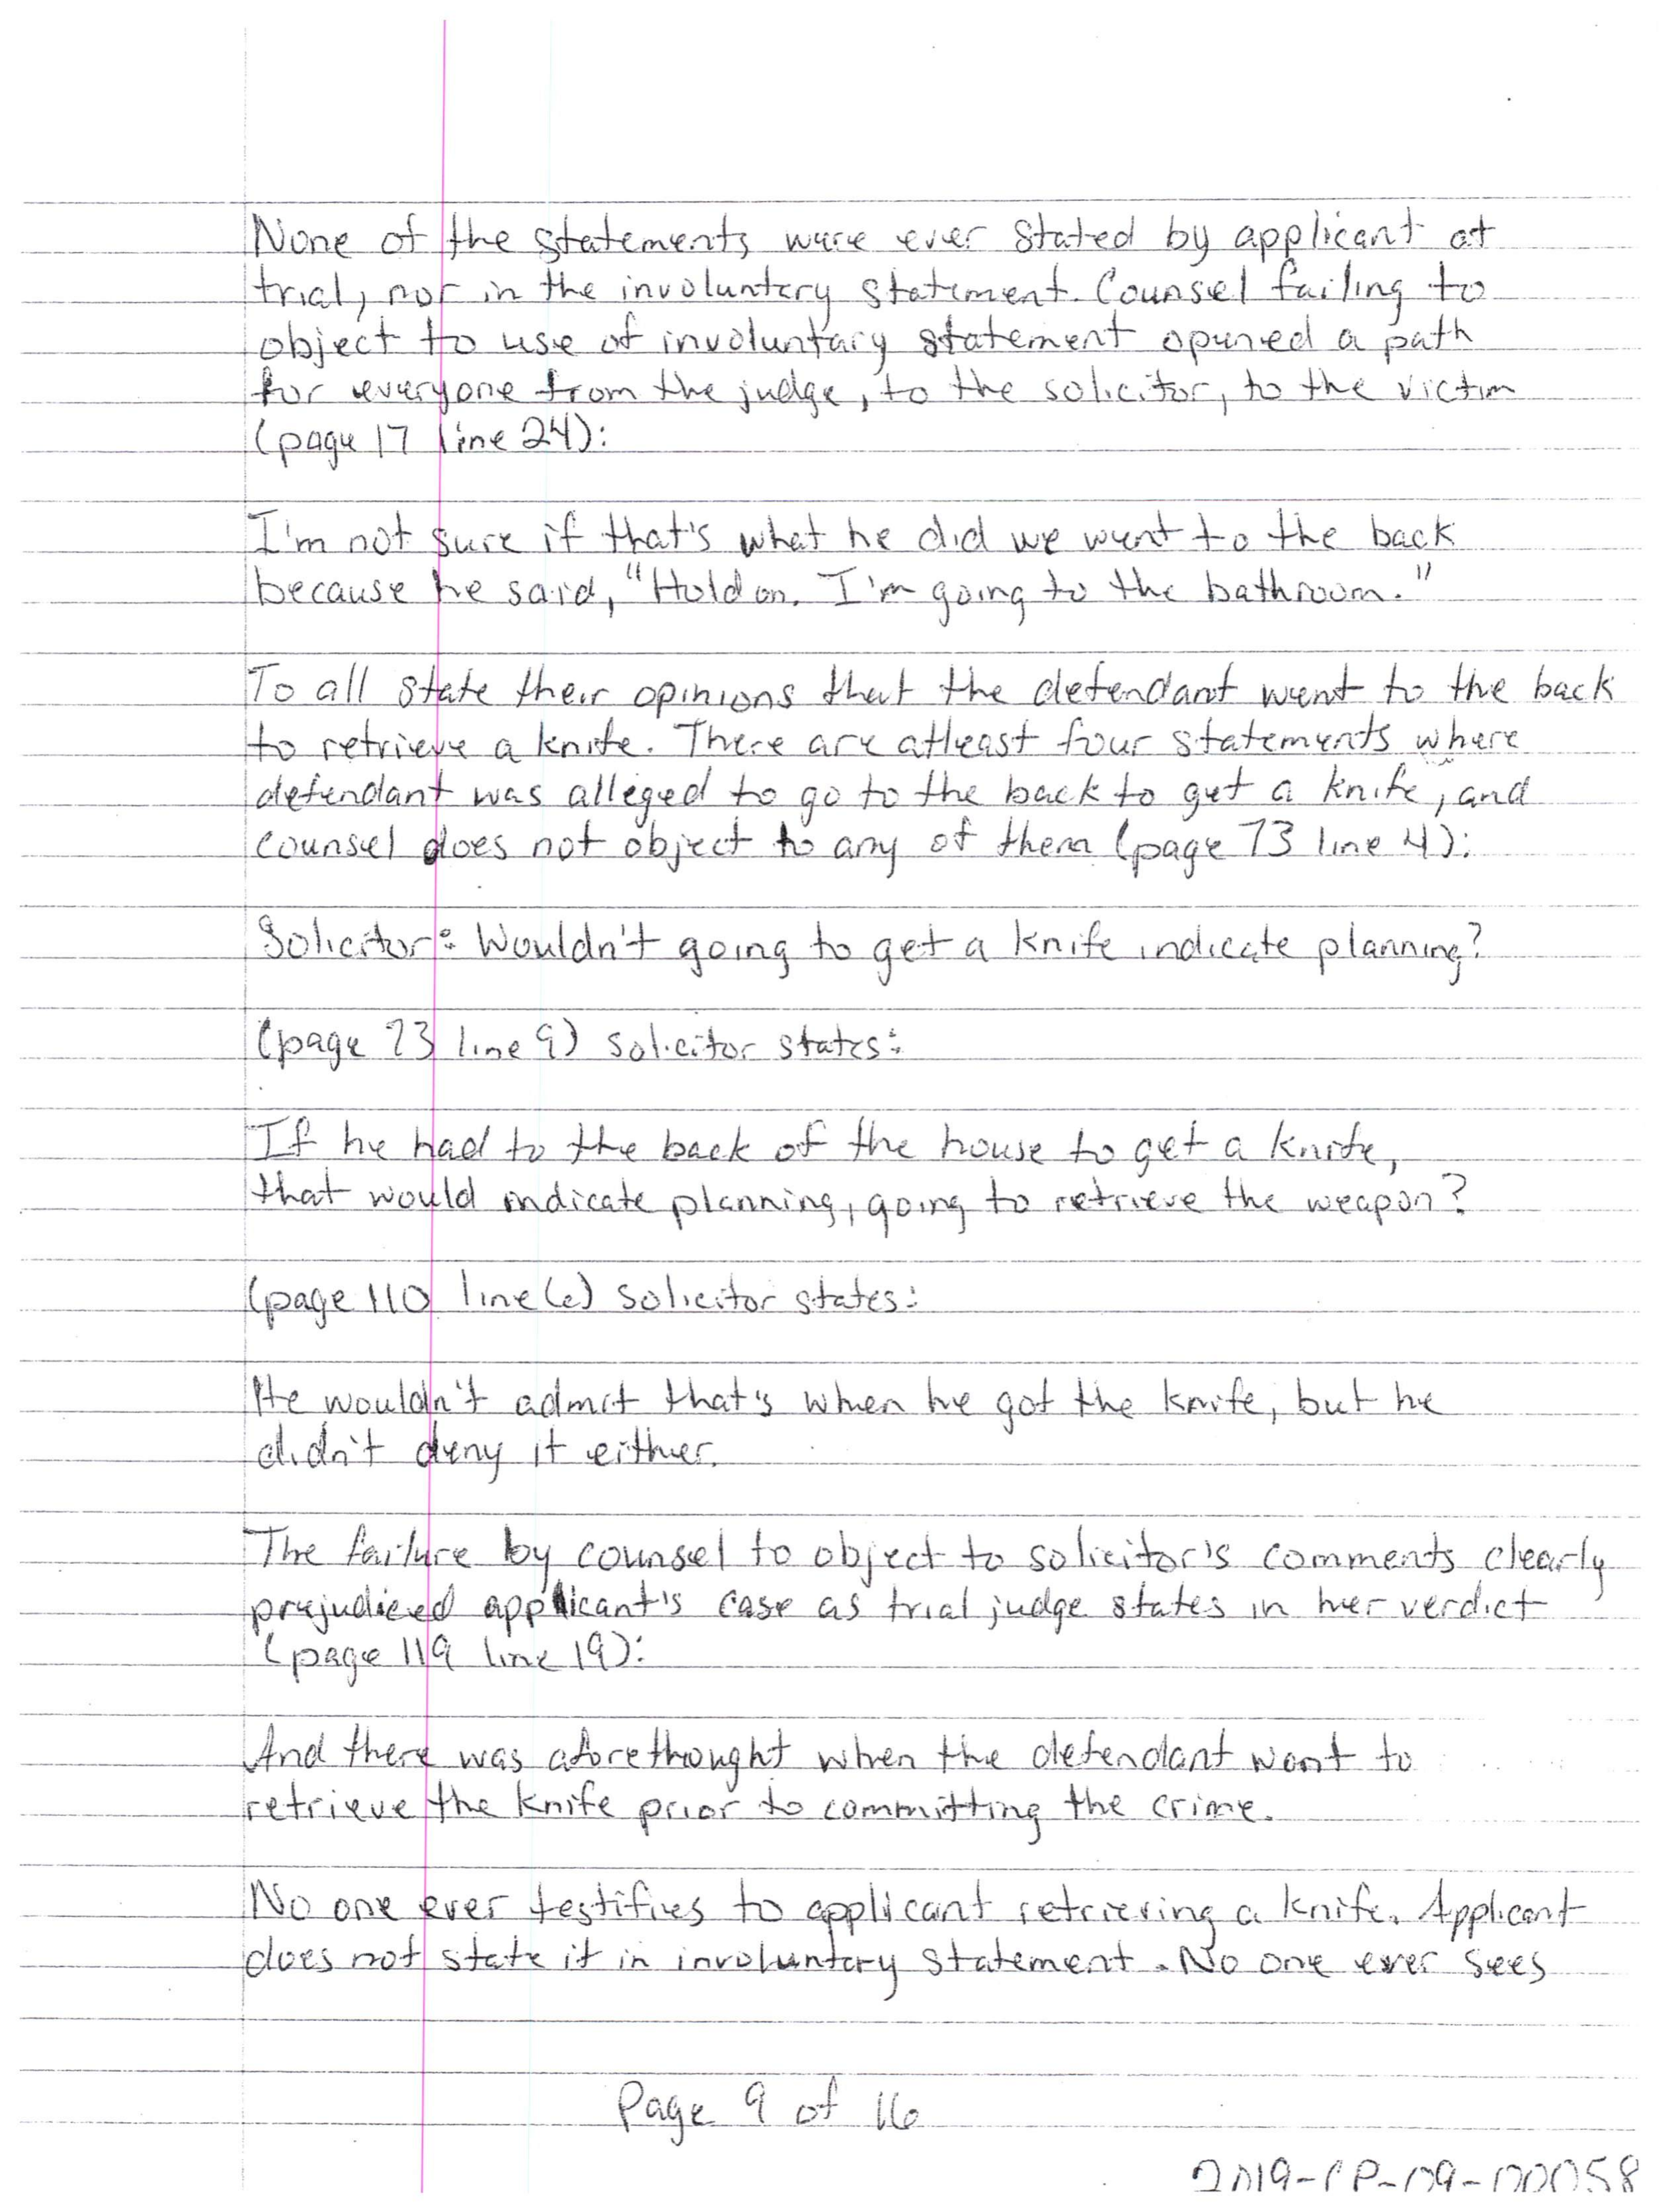 None of the statements were ever stated by applicant at
trial, nor in the involuntary statement. Counsel failing to
object to use of involuntary statement opened a path
for everyone from the judge, to the solicitor, to the victim
(page 17 line 24):
I'm not sure if that's what he did we went to the back
because he said, "Hold on. I'm going to the bathroom."
To all state their opinions that the defendant went to the back
to retrieve a knife. There are atleast four statements where
defendant was alleged to go to the back to get a knife, and
counsel does not object to any of them (page 73 line 4):
Solicitor: Wouldn't going to get a knife indicate planning?
(page 73 line 9) solicitor states:
If he had to the back of the house to get a knife,
that would indicate planning, going to retrieve the weapon?
(page 110 line 6) solicitor states:
He wouldn't admit that's when he got the knife, but he
didn't deny it either.
The failure by counsel to object to solicitor's comments clearly
prejudiced applicant's case as trial judge states in her verdict
(page 119 line 19):
And there was aforethought when the defendant went to
retrieve the knife prior to committing the crime.
No one ever testifies to applicant retrieving a knife. Applicant
does not state it in involuntary statement. No one ever sees
Page 9 of 16
2019-CP-09-00058